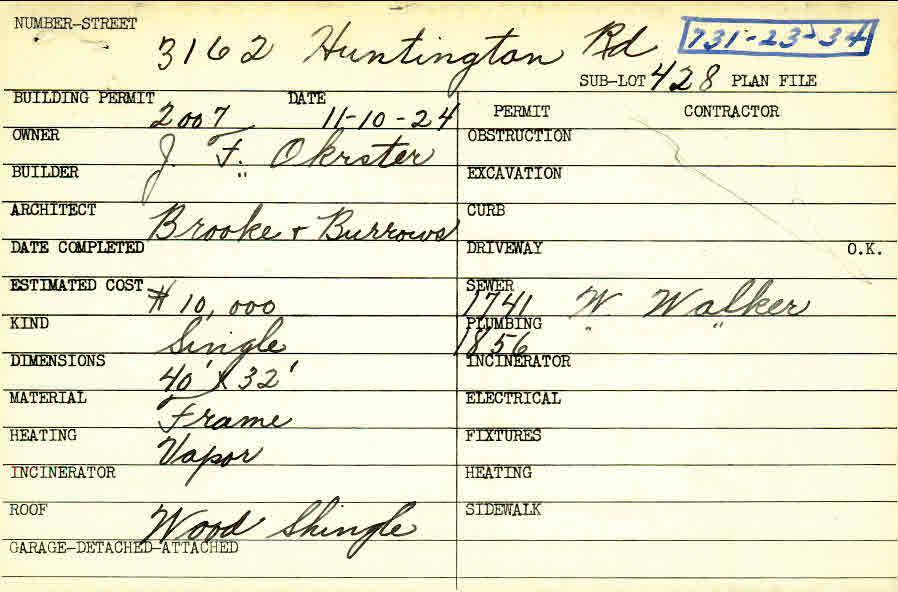 NUMBER-STREET
3162 Huntington Rd 731-23-34
SUB-LOT 428 PLAN FILE
BUILDING PERMIT 2007 DATE 11-10-24
OWNER J. F. Okrster
BUILDER "
ARCHITECT Brooke + Burrows
DATE COMPLETED
ESTIMATED COST $10,000
KIND Single
DIMENSIONS 40' X 32'
MATERIAL Frame
HEATING Vapor
INCINERATOR
ROOF Wood Shingle
GARAGE-DETACHED-ATTACHED
PERMIT CONTRACTOR
OBSTRUCTION
EXCAVATION
CURB
DRIVEWAY O.K.
SEWER 1741 W. Walker
PLUMBING 1856 " "
INCINERATOR
ELECTRICAL
FIXTURES
HEATING
SIDEWALK